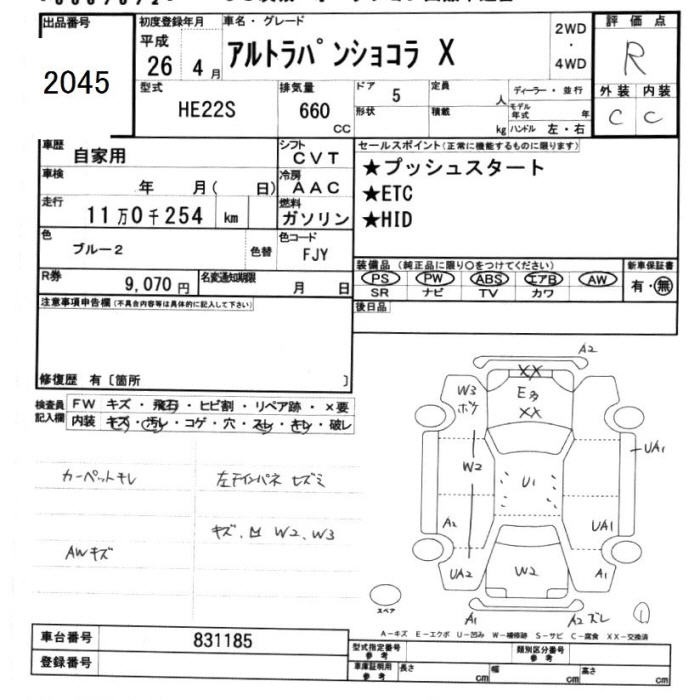 出品番号 初度登録年月 車名・グレード 評価点
2045 平成 26 4月 アルトラパンショコラ X 2WD・4WD R
型式 排気量 ドア 定員 ディーラー・並行 外装 内装
HE22S 660 CC 5 人 モデル年式 年 C C
形状 積載 kg ハンドル 左・右
車歴 自家用 シフト CVT セールスポイント(正常に機能するものに限ります)
車検 年 月( 日) 冷房 AAC ★プッシュスタート
走行 11万0千254 km 燃料 ガソリン ★ETC
★HID
色 ブルー2 色替 色コード FJY
装備品 (純正品に限り○をつけてください) 新車保証書
R券 9,070円 名変通知期限 月 日 PS PW ABS エアB AW 有・無
SR ナビ TV カワ
注意事項申告欄(不具合内容等は具体的に記入して下さい) 後日品
修復歴 有〔箇所 〕
検査員記入欄 FW キズ・飛石・ヒビ割・リペア跡・×要
内装 キズ・汚レ・コゲ・穴・スレ・キレ・破レ
カーペットキレ 左テインパネ ヒズミ
キズ、凹 W2、W3
AWキズ
A2
XX
W3 E多
ボケ XX
UA1
W2 U1
A2 UA1
UA2 W2 A1
スペア
A1 A2 ズレ ①
A-キズ E-エクボ U-凹み W-補修跡 S-サビ C-腐食 XX-交換済
車台番号 831185 型式指定番号 参考 類別区分番号 参考
登録番号 車庫証明用 参考 長さ cm 幅 cm 高さ cm